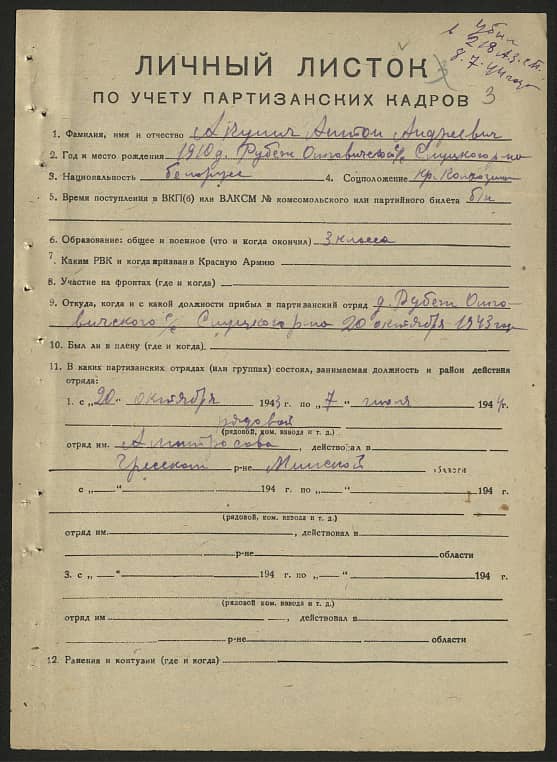 Убыл
в 218 Аз.с.п.
8.7.44 года
ЛИЧНЫЙ ЛИСТОК
ПО УЧЕТУ ПАРТИЗАНСКИХ КАДРОВ 3
1. Фамилия, имя и отчество Антон Андреевич
2. Год и место рождения 1910 д. Рубеж с/с Слуцкого р-на
3. Национальность белорус 4. Соцположение кр. Колхозник
5. Время поступления в ВКП(б) или ВЛКСМ № комсомольского или партийного билета б/п
6. Образование: общее и военное (что и когда окончил) 3 класса
7. Каким РВК и когда призван в Красную Армию
8. Участие на фронтах (где и когда)
9. Откуда, когда и с какой должности прибыл в партизанский отряд д. Рубеж
с/с Слуцкого р-на 20 октября 1943 года
10. Был ли в плену (где и когда)
11. В каких партизанских отрядах (или группах) состоял, занимаемая должность и район действия
отряда:
1. с „20“ октября 1943 г. по „7“ июля 1944 г.
рядовой
(рядовой, ком. взвода и т. д.)
отряд им. , действовал в
Гресском р-не Минской области
с „ “ 194 г. по „ “ 194 г.
(рядовой, ком. взвода и т. д.)
отряд им. , действовал в
р-не области
3. с „ “ 194 г. по „ “ 194 г.
(рядовой, ком. взвода и т. д.)
отряд им , действовал в
р-не области
12. Ранения и контузии (где и когда)